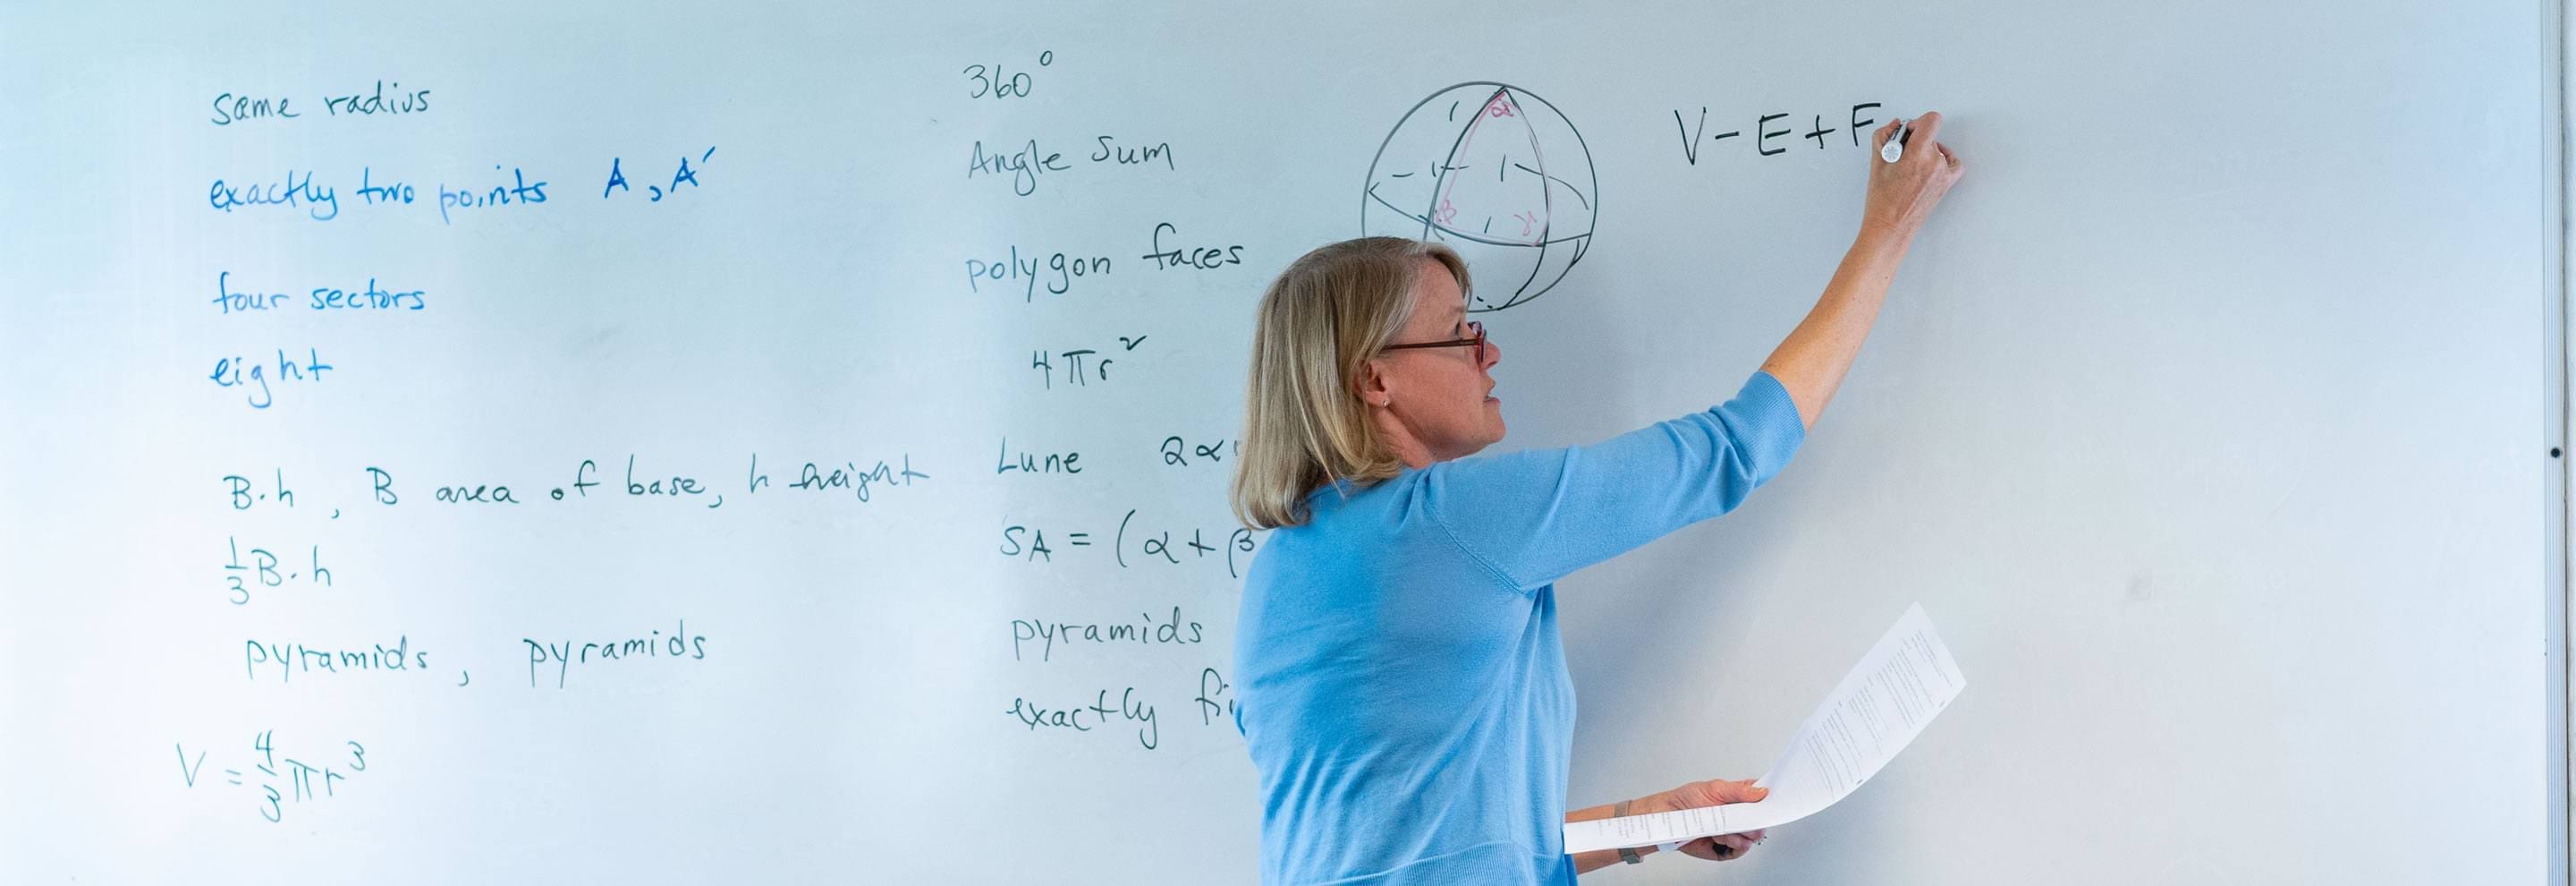 same radius
exactly two points A, A′
four sectors
eight
B·h, B area of base, h height
1/3 B·h
pyramids, pyramids
V = 4/3 πr³
360°
Angle Sum
polygon faces
4πr²
Lune 2α
SA = (α + β
pyramids
exactly
α
β γ
V - E + F